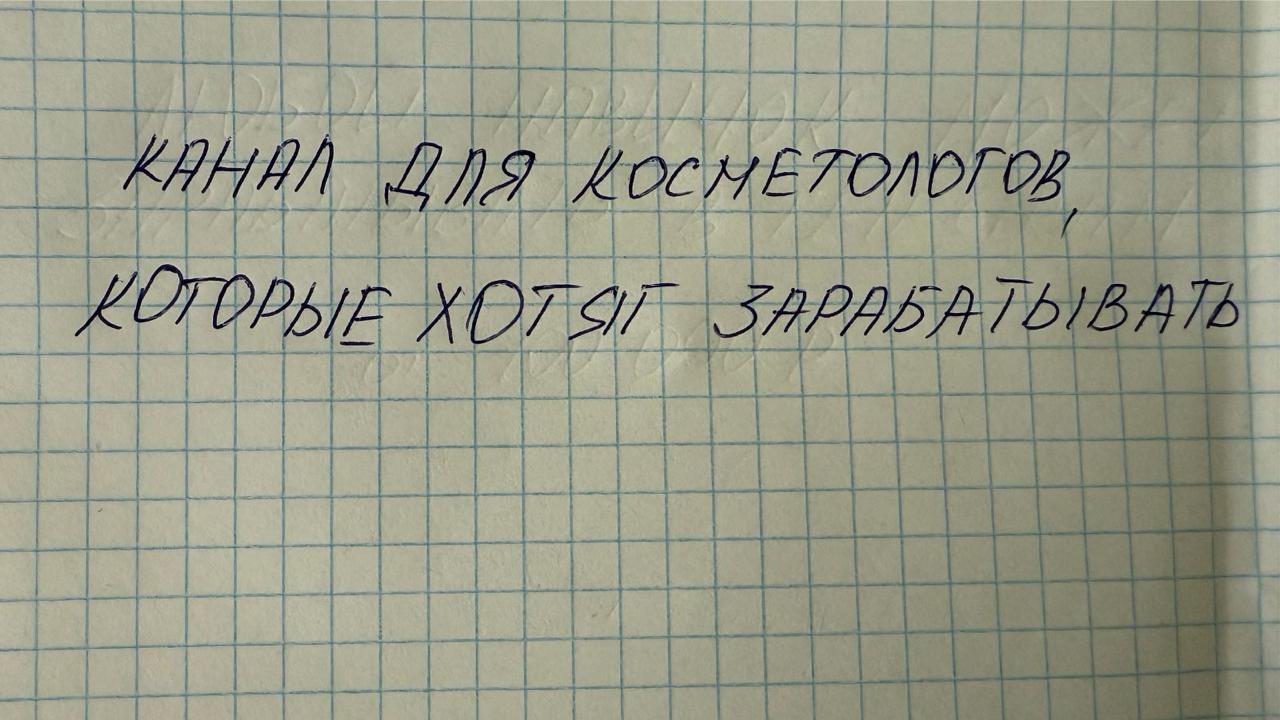 КАНАЛ ДЛЯ КОСМЕТОЛОГОВ,
КОТОРЫЕ ХОТЯТ ЗАРАБАТЫВАТЬ